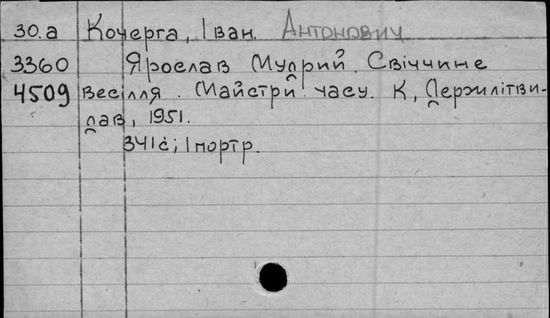 30.а Кочерга, Іван. Антонович
3360 Ярослав Мудрий. Свіччине
4509 весілля. Майстри часу. К, Держлітви-
дав, 1951.
341с; 1 портр.